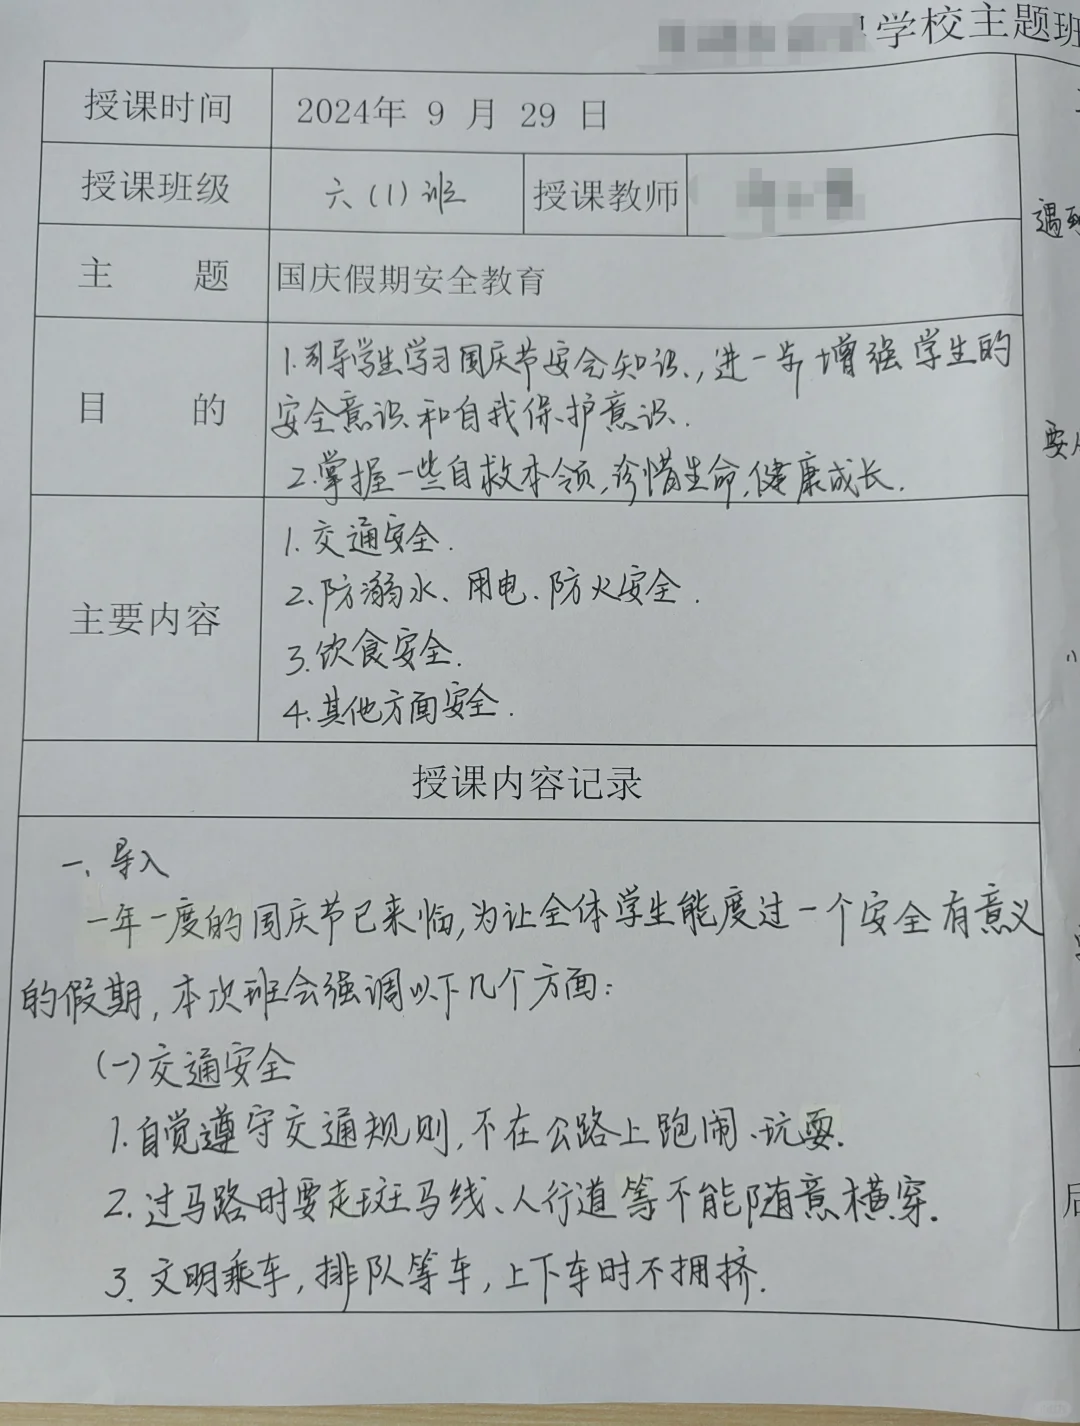 学校主题班
授课时间 2024年 9 月 29 日
授课班级 六(1)班 授课教师
主 题 国庆假期安全教育
目 的
1.引导学生学习国庆节安全知识,进一步增强学生的
安全意识和自我保护意识.
2.掌握一些自救本领,珍惜生命,健康成长.
主要内容
1.交通安全.
2.防溺水、用电、防火安全.
3.饮食安全.
4.其他方面安全.
授课内容记录
一、导入
一年一度的国庆节已来临,为让全体学生能度过一个安全有意义
的假期,本次班会强调以下几个方面:
(一)交通安全
1.自觉遵守交通规则,不在公路上跑闹、玩耍.
2.过马路时要走斑马线、人行道等不能随意横穿.
3.文明乘车,排队等车,上下车时不拥挤.
遇到
要
后